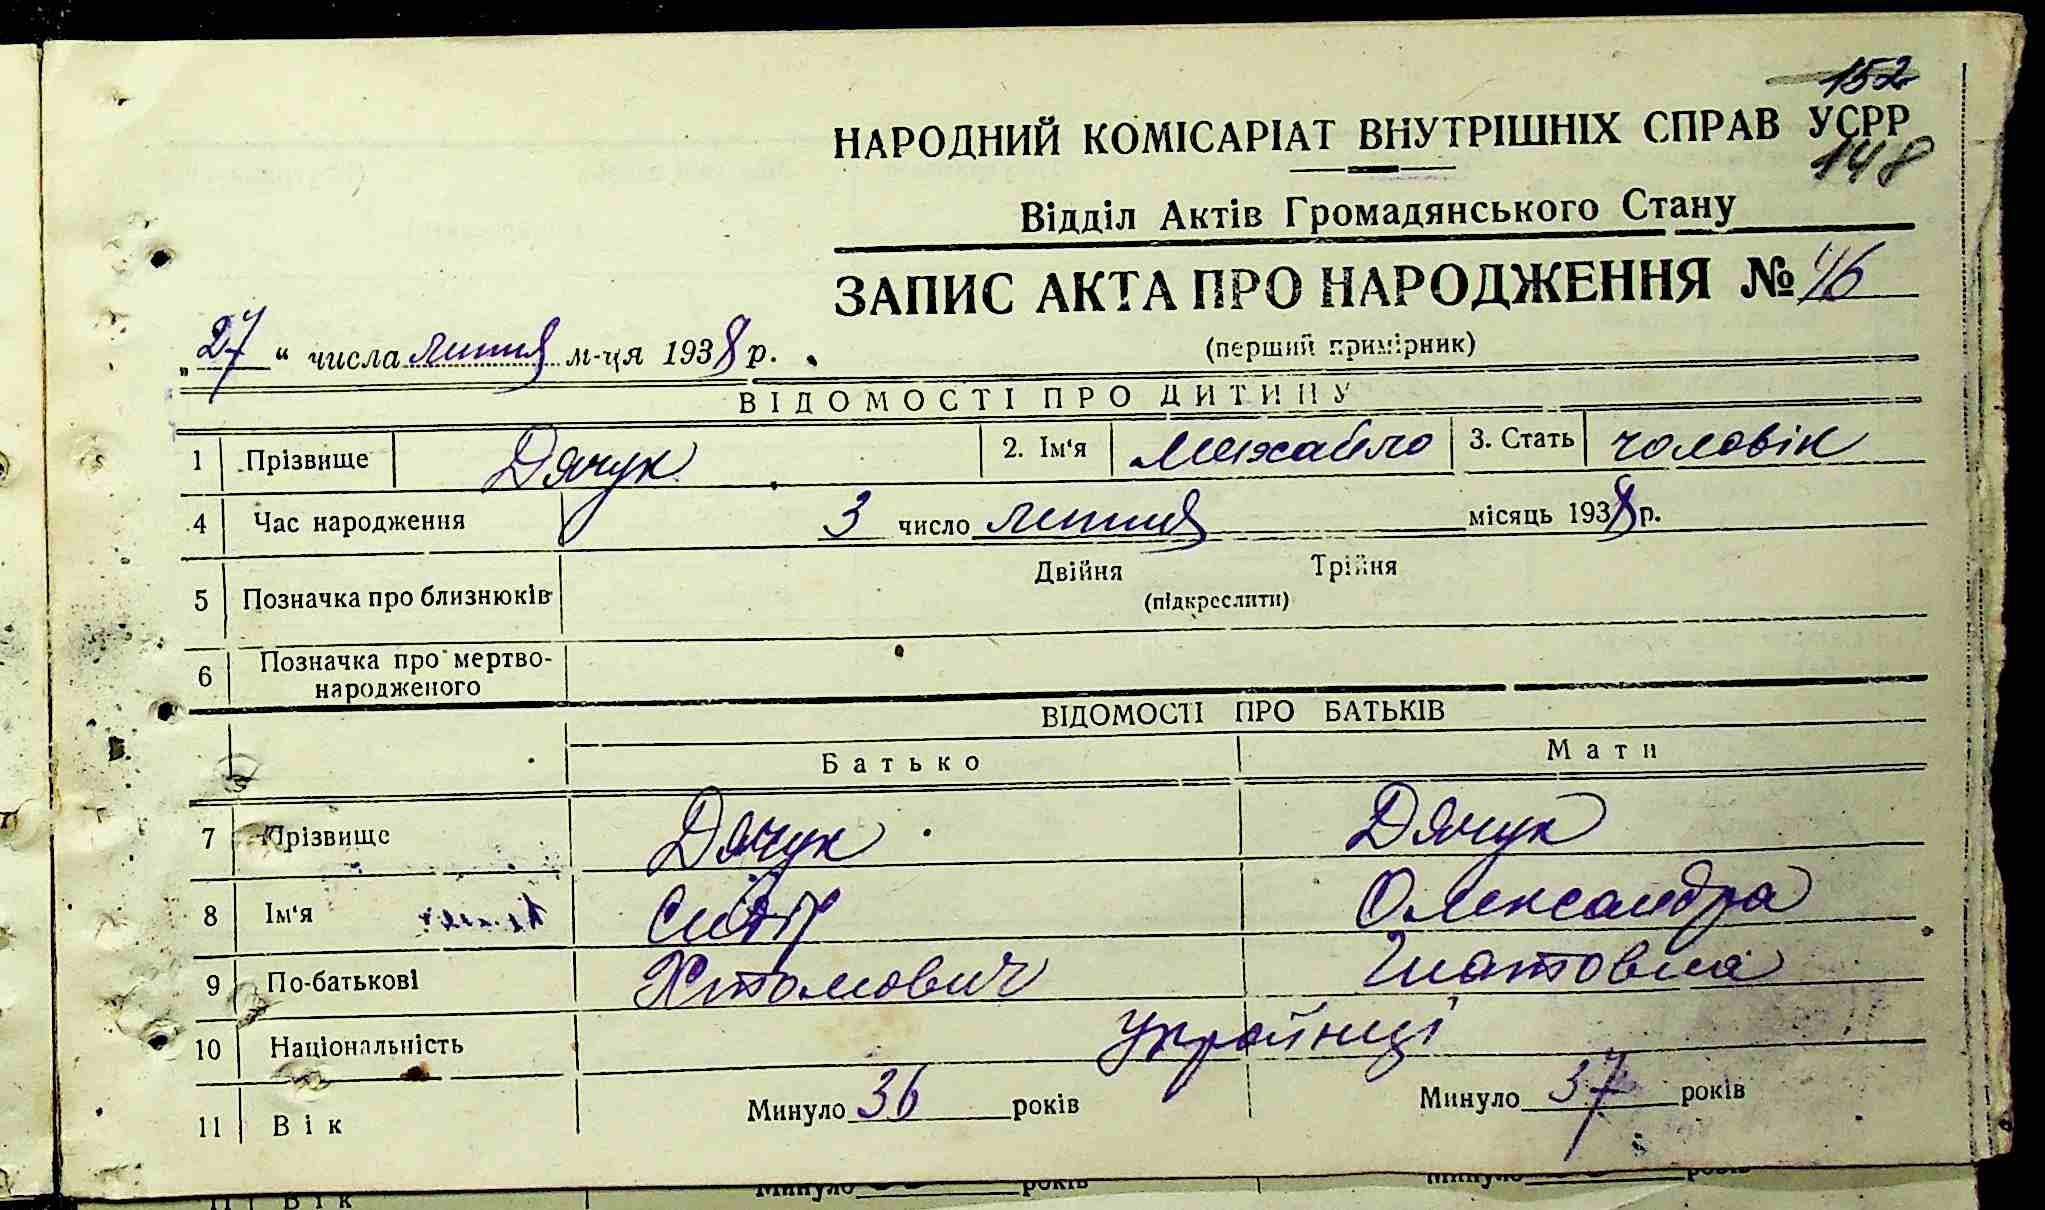 152
НАРОДНИЙ КОМІСАРІАТ ВНУТРІШНІХ СПРАВ УСРР
148
Відділ Актів Громадянського Стану
ЗАПИС АКТА ПРО НАРОДЖЕННЯ № 46
(перший примірник)
„27“ числа липня м-ця 1938 р.
ВІДОМОСТІ ПРО ДИТИНУ
1 Прізвище Дячук 2. Ім'я Михайло 3. Стать чоловік
4 Час народження 3 число липня місяць 1938 р.
Двійня Трійня
5 Позначка про близнюків (підкреслити)
6 Позначка про мертво-
народженого
ВІДОМОСТІ ПРО БАТЬКІВ
Батько Мати
7 Прізвище Дячук Дячук
8 Ім'я Олександра
9 По-батькові
10 Національність Українці
11 Вік Минуло 36 років Минуло 37 років
11 Вік Минуло років Минуло років